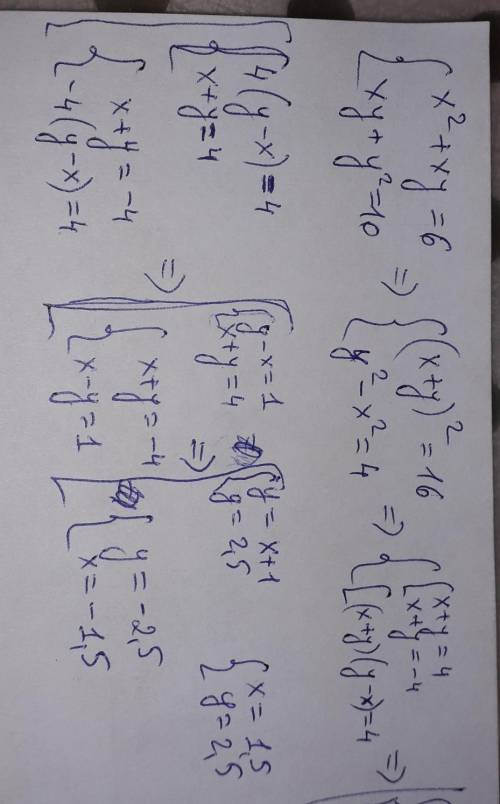 { x² + xy = 6
{ xy + y² = 10
=> { (x+y)² = 16
{ y² - x² = 4
=> { [ x+y = 4
[ x+y = -4
[ (x+y)(y-x) = 4
=>
[ { 4(y-x) = 4
{ x+y = 4
[ { x+y = -4
{ -4(y-x) = 4
=> [ { y-x = 1
{ x+y = 4
[ { x+y = -4
{ x-y = 1
=> [ { y = x+1
{ y = 2,5
[ { y = -2,5
{ x = -1,5
{ x = 1,5
{ y = 2,5